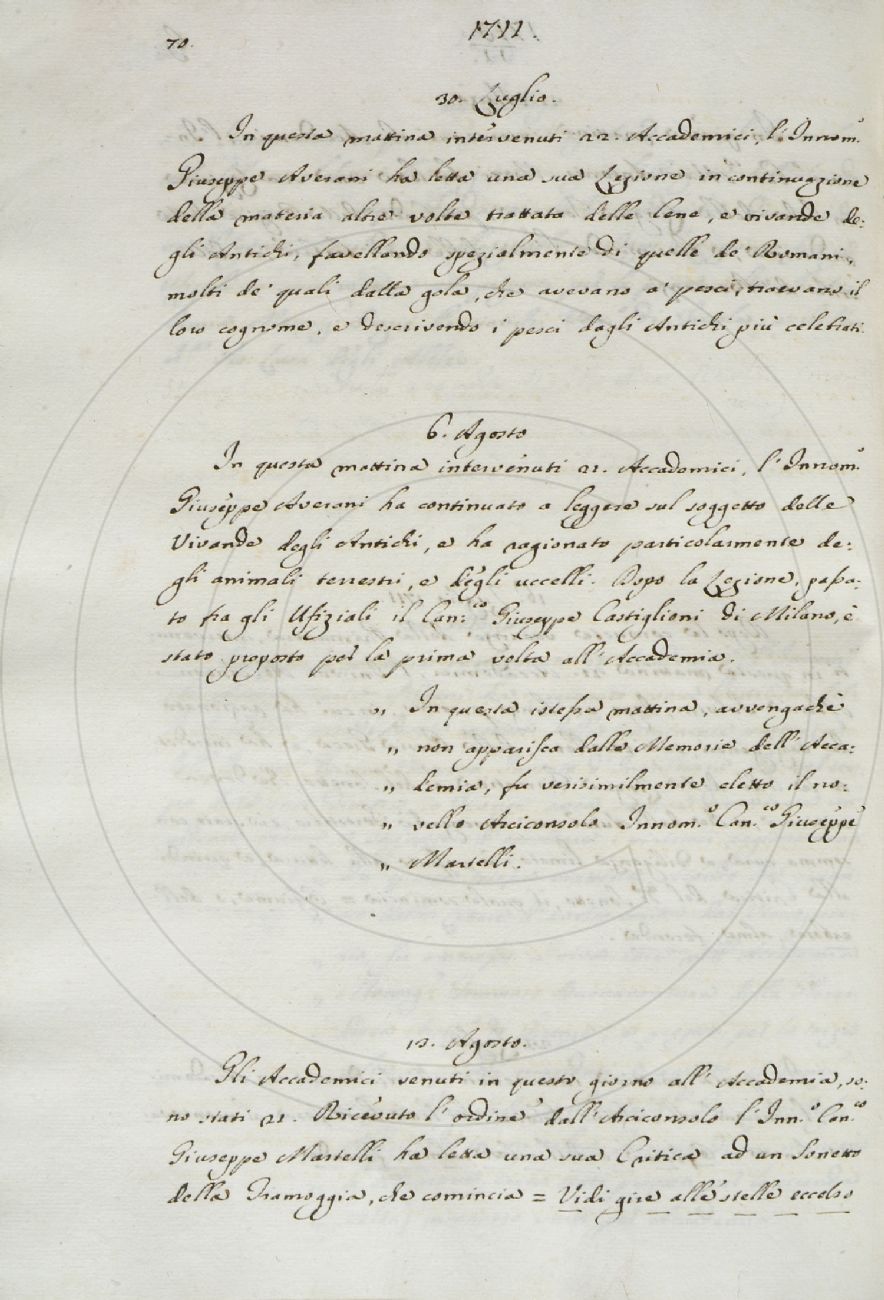 70.
1711.
30. Luglio.
In questa mattina intervenuti 22. Accademici, l'Innom.º
Giuseppe Averani ha letta una sua Lezione in continuazione
della materia altre volte trattata delle Cene, e vivande de=
gli Antichi, favellando spezialmente di quelle de' Romani,
molti de' quali dalla gola, che avevano a' pesci, traevano il
loro cognome, e descrivendo i pesci dagli Antichi più celebrati.
6. Agosto
In questa mattina intervenuti 21. Accademici, l'Innom.º
Giuseppe Averani ha continuato a leggere sul soggetto delle
Vivande degli Antichi, e ha ragionato particolarmente de=
gli animali terrestri, e degli uccelli. Dopo la Lezione, passa=
to fra gli Ufiziali il Can.co Giuseppe Castiglioni di Milano, è
stato proposto per la prima volta all'Accademia.
„ In questa istessa mattina, avvengachè
„ non apparisca dalle Memorie dell'Acca=
„ demia, fu verisimilmente eletto il no=
„ vello Arciconsolo Innom.º Can.co Giuseppe
„ Martelli.
13. Agosto.
Gli Accademici venuti in questo giorno all'Accademia, so=
no stati 21. Ricevuto l'ordine dall'Arciconsolo l'Inn.º Can.co
Giuseppe Martelli ha letta una sua Critica ad un Sonetto
della Tramoggia, che comincia = Vidi gire alle stelle eccelso